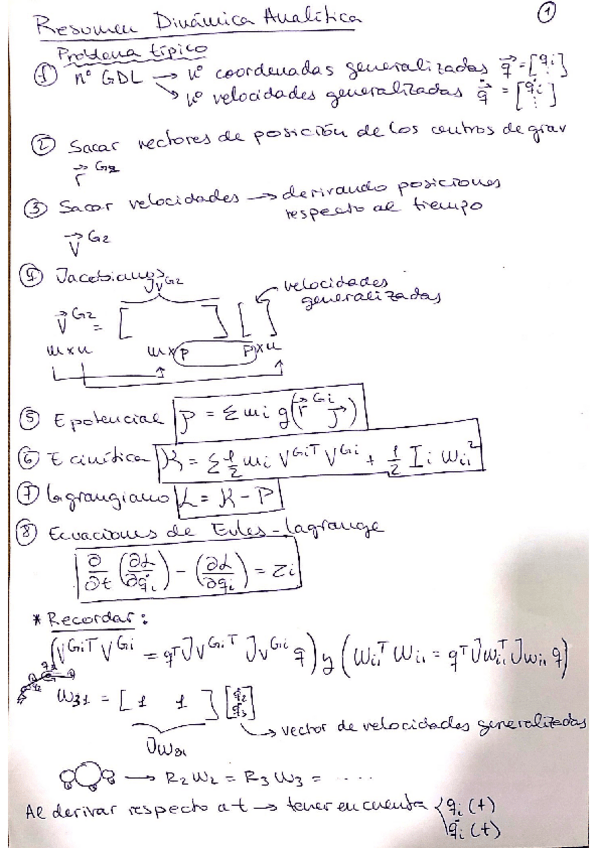 Resumen Dinámica Analítica
①
Problema típico
① nº GDL → nº coordenadas generalizadas q⃗ = [qi ⋮]
↘ nº velocidades generalizadas q̇⃗ = [q̇i ⋮]
② Sacar vectores de posición de los centros de grav
r⃗ G2
③ Sacar velocidades → derivando posiciones
respecto al tiempo
V⃗ G2
④ Jacobianos
JvG2
velocidades
generalizadas
V⃗ G2 = [ ] [ ]
m×n m×p p×n
⑤ E potencial P = Σ mi g (r⃗ Gi j⃗)
⑥ E cinética K = Σ ½ mi VGiT VGi + ½ Ii Wi1²
⑦ Lagrangiano L = K - P
⑧ Ecuaciones de Euler-Lagrange
∂/∂t (∂L/∂q̇i) - (∂L/∂qi) = τi
* Recordar:
(VGiT VGi = qT JvGiT JvGi q) y (Wi1T Wi1 = qT JWi1T JWi1 q)
W31 = [1 1] [q̇2 q̇3]
→ vector de velocidades generalizadas
JW31
→ R2W2 = R3W3 = ....
Al derivar respecto a t → tener en cuenta { qi(t)
q̇i(t)